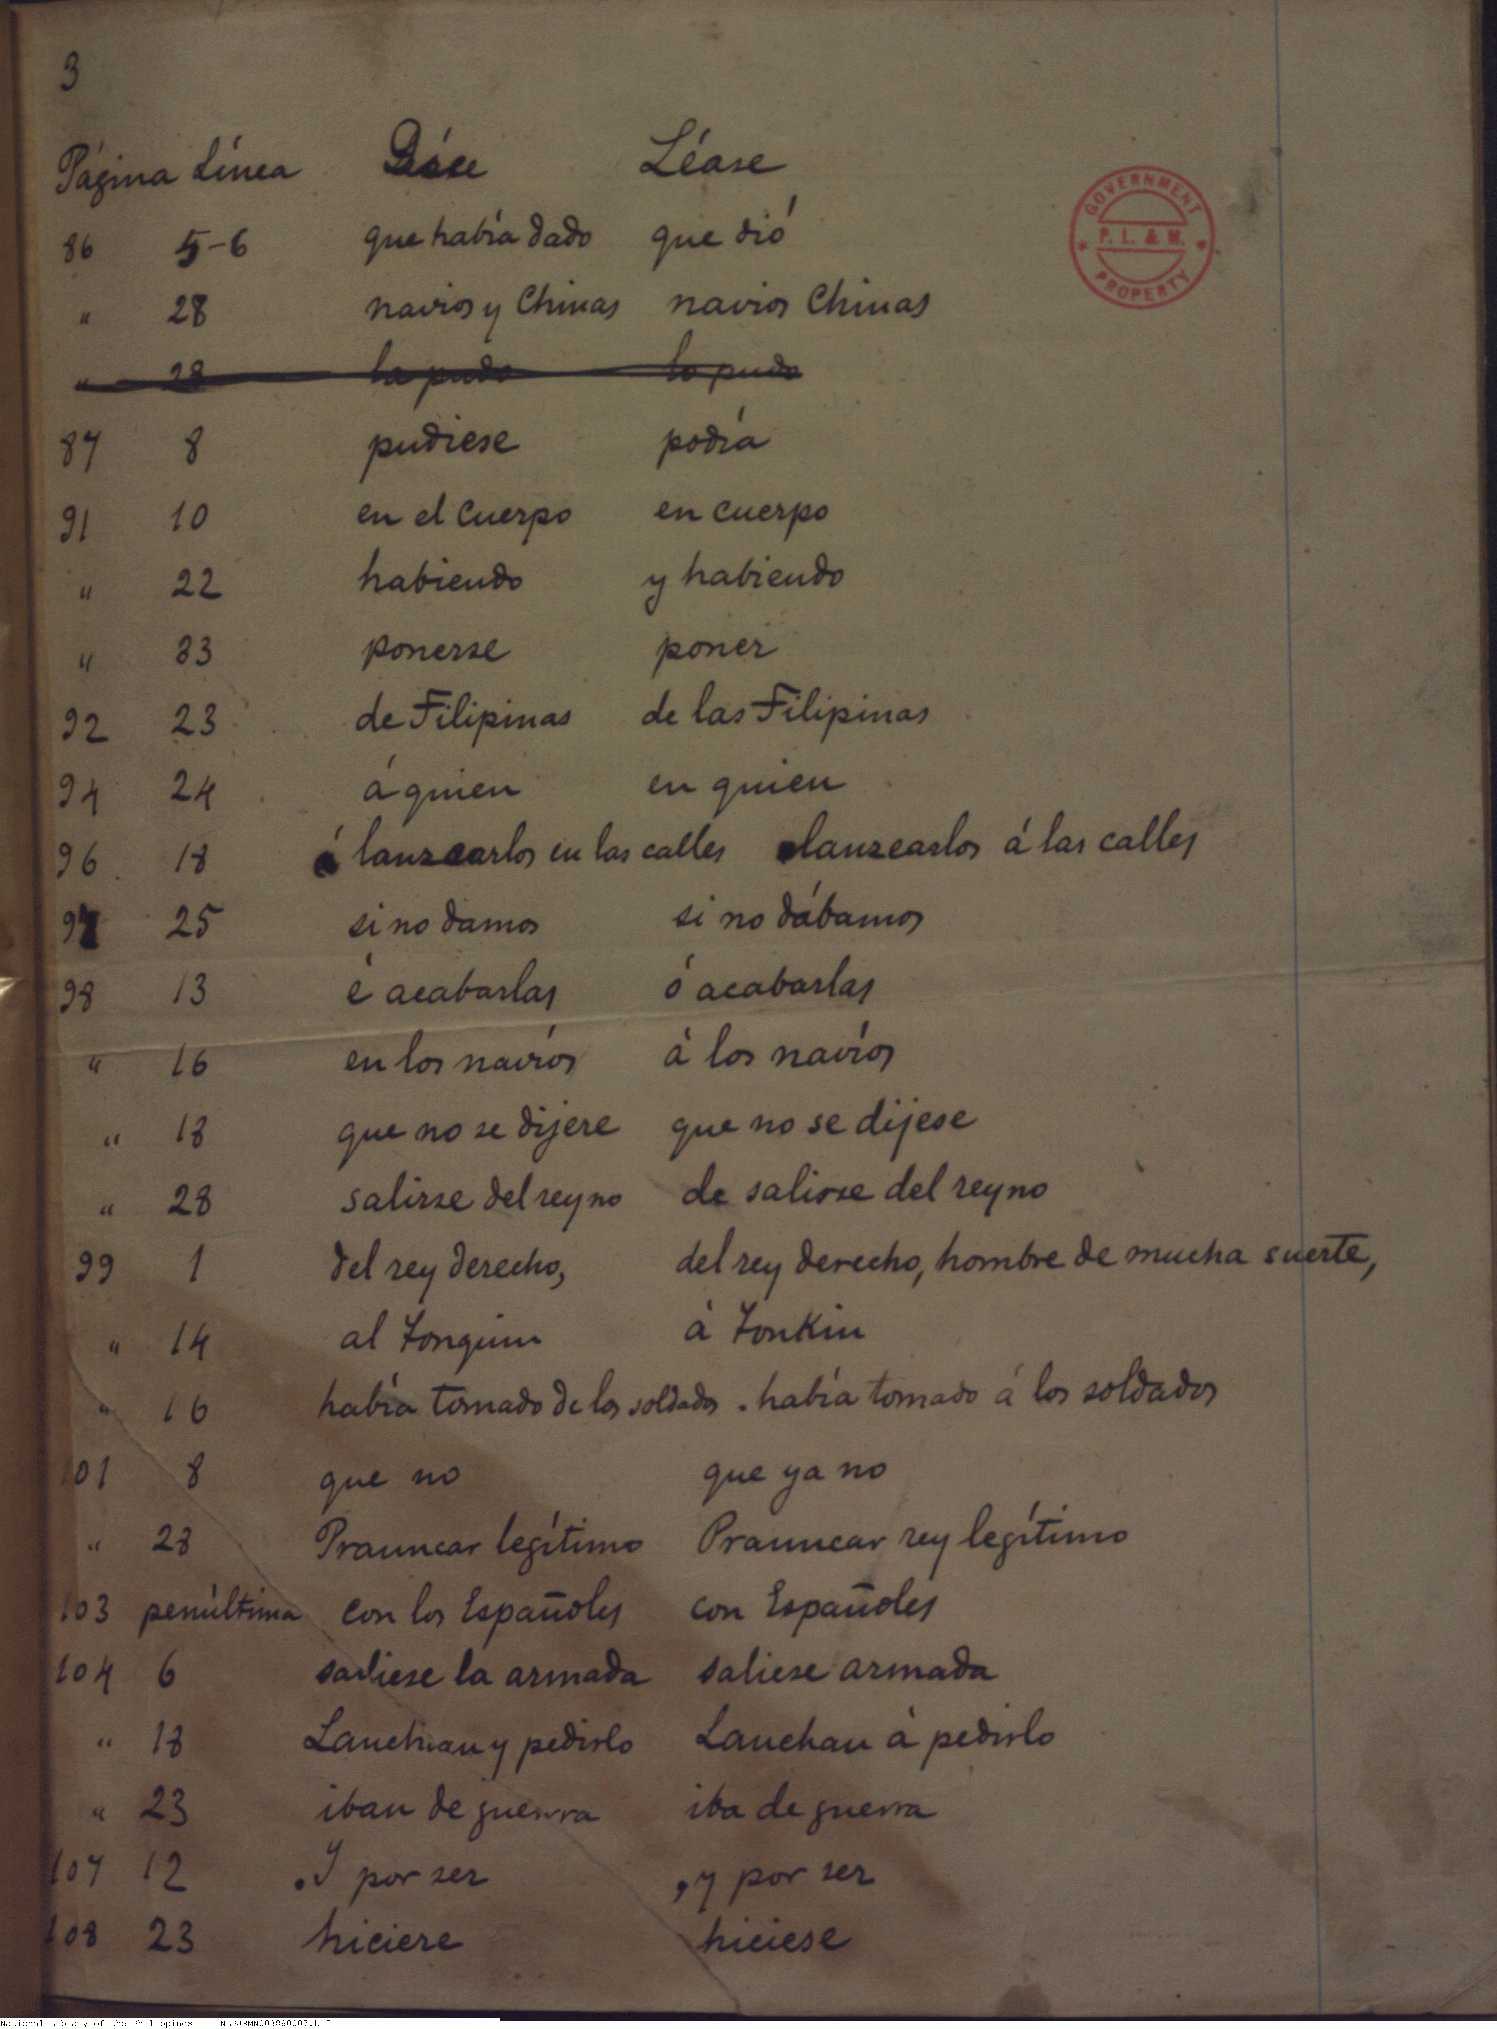 3
Página Línea Dice Léase
86 5-6 que había dado que dió
GOVERNMENT
P. L. & M.
PROPERTY
" 28 navios y Chinas navios Chinas
" 28 la pudo lo pudo
87 8 pudiese podía
91 10 en el cuerpo en cuerpo
" 22 habiendo y habiendo
" 33 ponerse poner
92 23 de Filipinas de las Filipinas
94 24 á quien en quien
96 18 á lanzearlos en las calles lanzearlos á las calles
97 25 si no damos si no dábamos
98 13 é acabarlas ó acabarlas
" 16 en los navíos á los navíos
" 18 que no se dijere que no se dijese
" 28 salirse del reyno de salirse del reyno
99 1 del rey derecho, del rey derecho, hombre de mucha suerte,
" 14 al Tonquin á Tonkin
" 16 había tomado de los soldados . había tomado á los soldados
101 8 que no que ya no
" 28 Prauncar legítimo Prauncar rey legítimo
103 penúltima con los Españoles con Españoles
104 6 saliese la armada saliese armada
" 18 Lanchan y pedirlo Lanchan á pedirlo
" 23 iban de guerra iba de guerra
107 12 . Y por ser , y por ser
108 23 hiciere hiciese
National Library of the Philippines